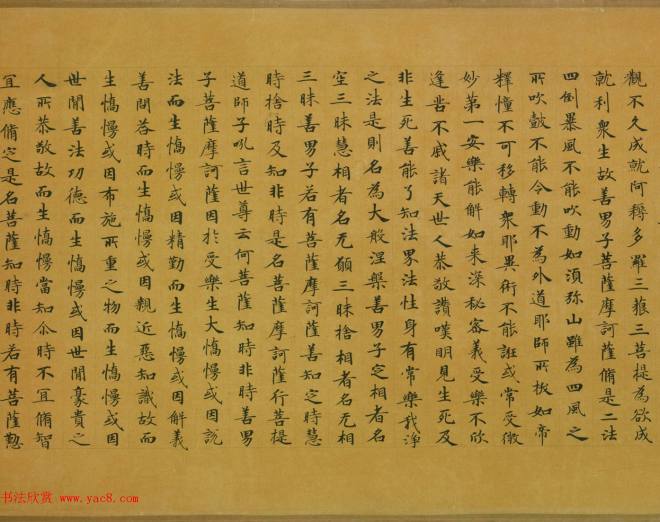 觀不久成就阿耨多羅三藐三菩提為欲成
就利衆生故善男子菩薩摩訶薩脩是二法
四倒暴風不能吹動如須弥山雖為四風之
所吹鼓不能令動不為外道耶師所拔如帝
釋幢不可移轉衆耶異術不能誑或常受微
妙第一安樂能解如来深秘密義受樂不欣
逢苦不慼諸天世人恭敬讚嘆明見生死及
非生死善能了知法界法性身有常樂我淨
之法是則名為大般涅槃善男子定相者名
空三昧慧相者名无願三昧捨相者名无相
三昧善男子若有菩薩摩訶薩善知定時慧
時捨時及知非時是名菩薩摩訶薩行菩提
道師子吼言世尊云何菩薩知時非時善男
子菩薩摩訶薩因於受樂生大憍慢或因說
法而生憍慢或因精勤而生憍慢或因解義
善問荅時而生憍慢或因親近惡知識故而
生憍慢或因布施所重之物而生憍慢或因
世間善法功德而生憍慢或因世間豪貴之
人所恭敬故而生憍慢當知尒時不宜脩智
宜應脩定是名菩薩知時非時若有菩薩懃
书法欣赏 www.yac8.com